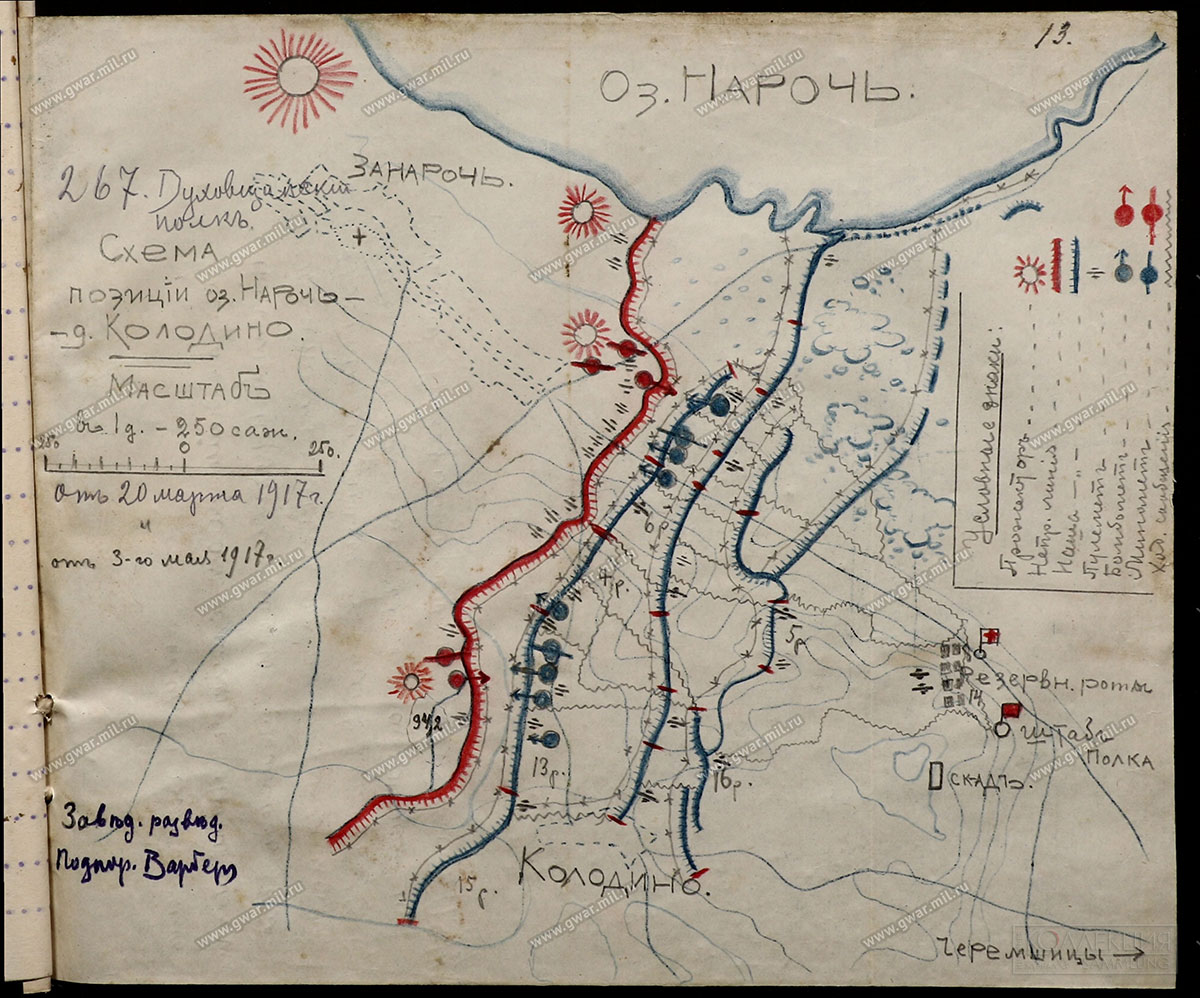 13.
Оз. Нарочь.
Занарочь.
267. Духовщинскій
полкъ.
Схема
позиціи оз. Нарочь –
– д. Колодино.
Масштабъ
въ 1 д. – 250 саж.
250 0 250.
Отъ 20 марта 1917 г.
и
отъ 3-го мая 1917 г.
Условные знаки:
Прожекторъ
Непр. линія
Наша –„–
Пулеметъ
Бомбометъ
Минометъ
Ход. сообщенія
6 р.
4 р.
5 р.
942
13 р.
16 р.
15 р.
Резервн. роты
14
Штабъ
Полка
Складъ.
Колодино.
Черемшицы →
Завѣд. развѣд.
Подпор.
www.gwar.mil.ru
КОЛЛЕКЦИЯ